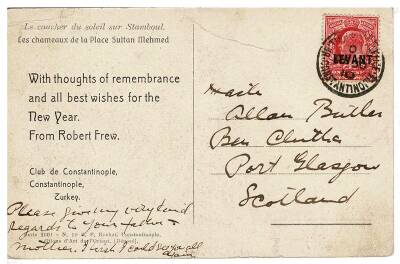 Le coucher du soleil sur Stamboul.
Les chameaux de la Place Sultan Mehmed
With thoughts of remembrance
and all best wishes for the
New Year.
From Robert Frew.
Club de Constantinople,
Constantinople,
Turkey.
Please give my very kind
regards to your father &
mother. I wish I could see you all
again
LEVANT
Allan Butler
Ben Clutha
Port Glasgow
Scotland